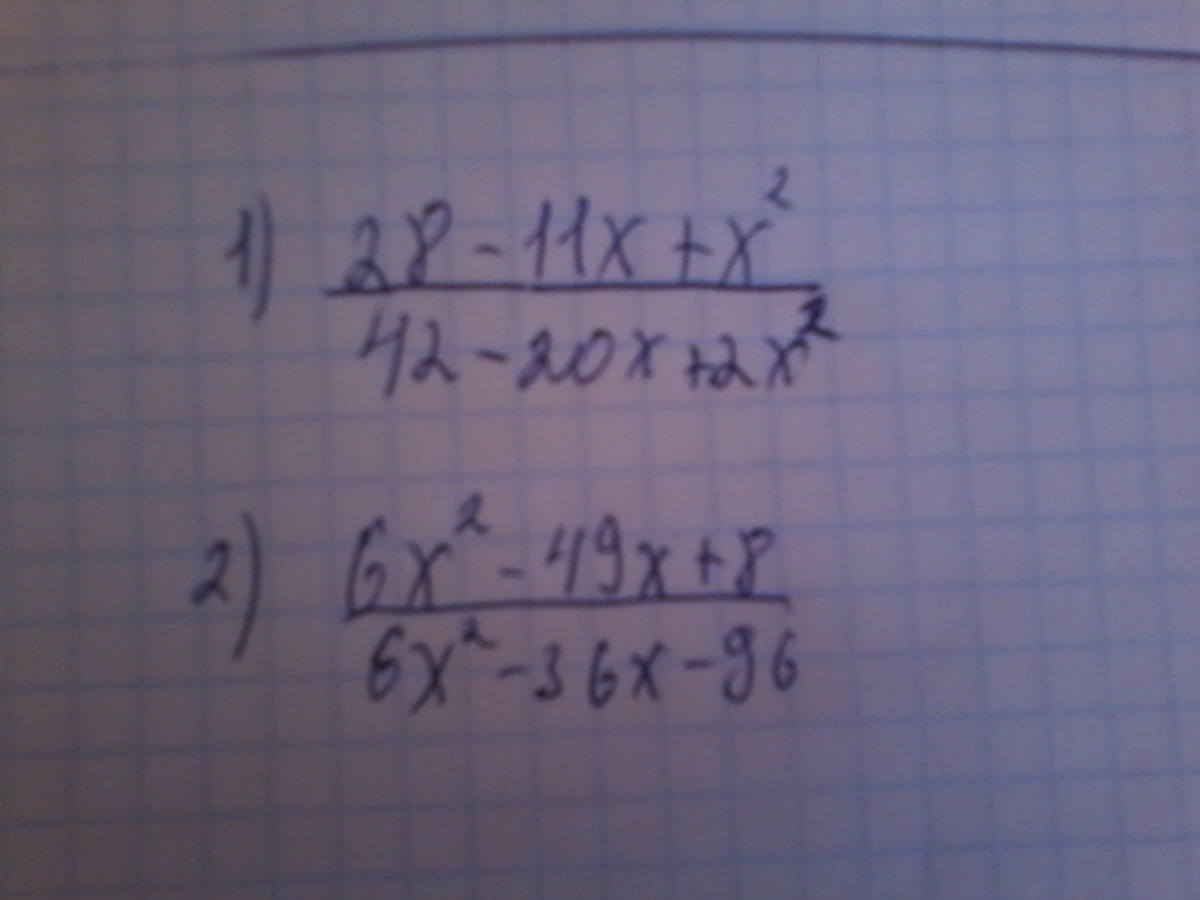 1) 28 - 11x + x²
42 - 20x + 2x²
2) 6x² - 49x + 8
6x² - 36x - 96